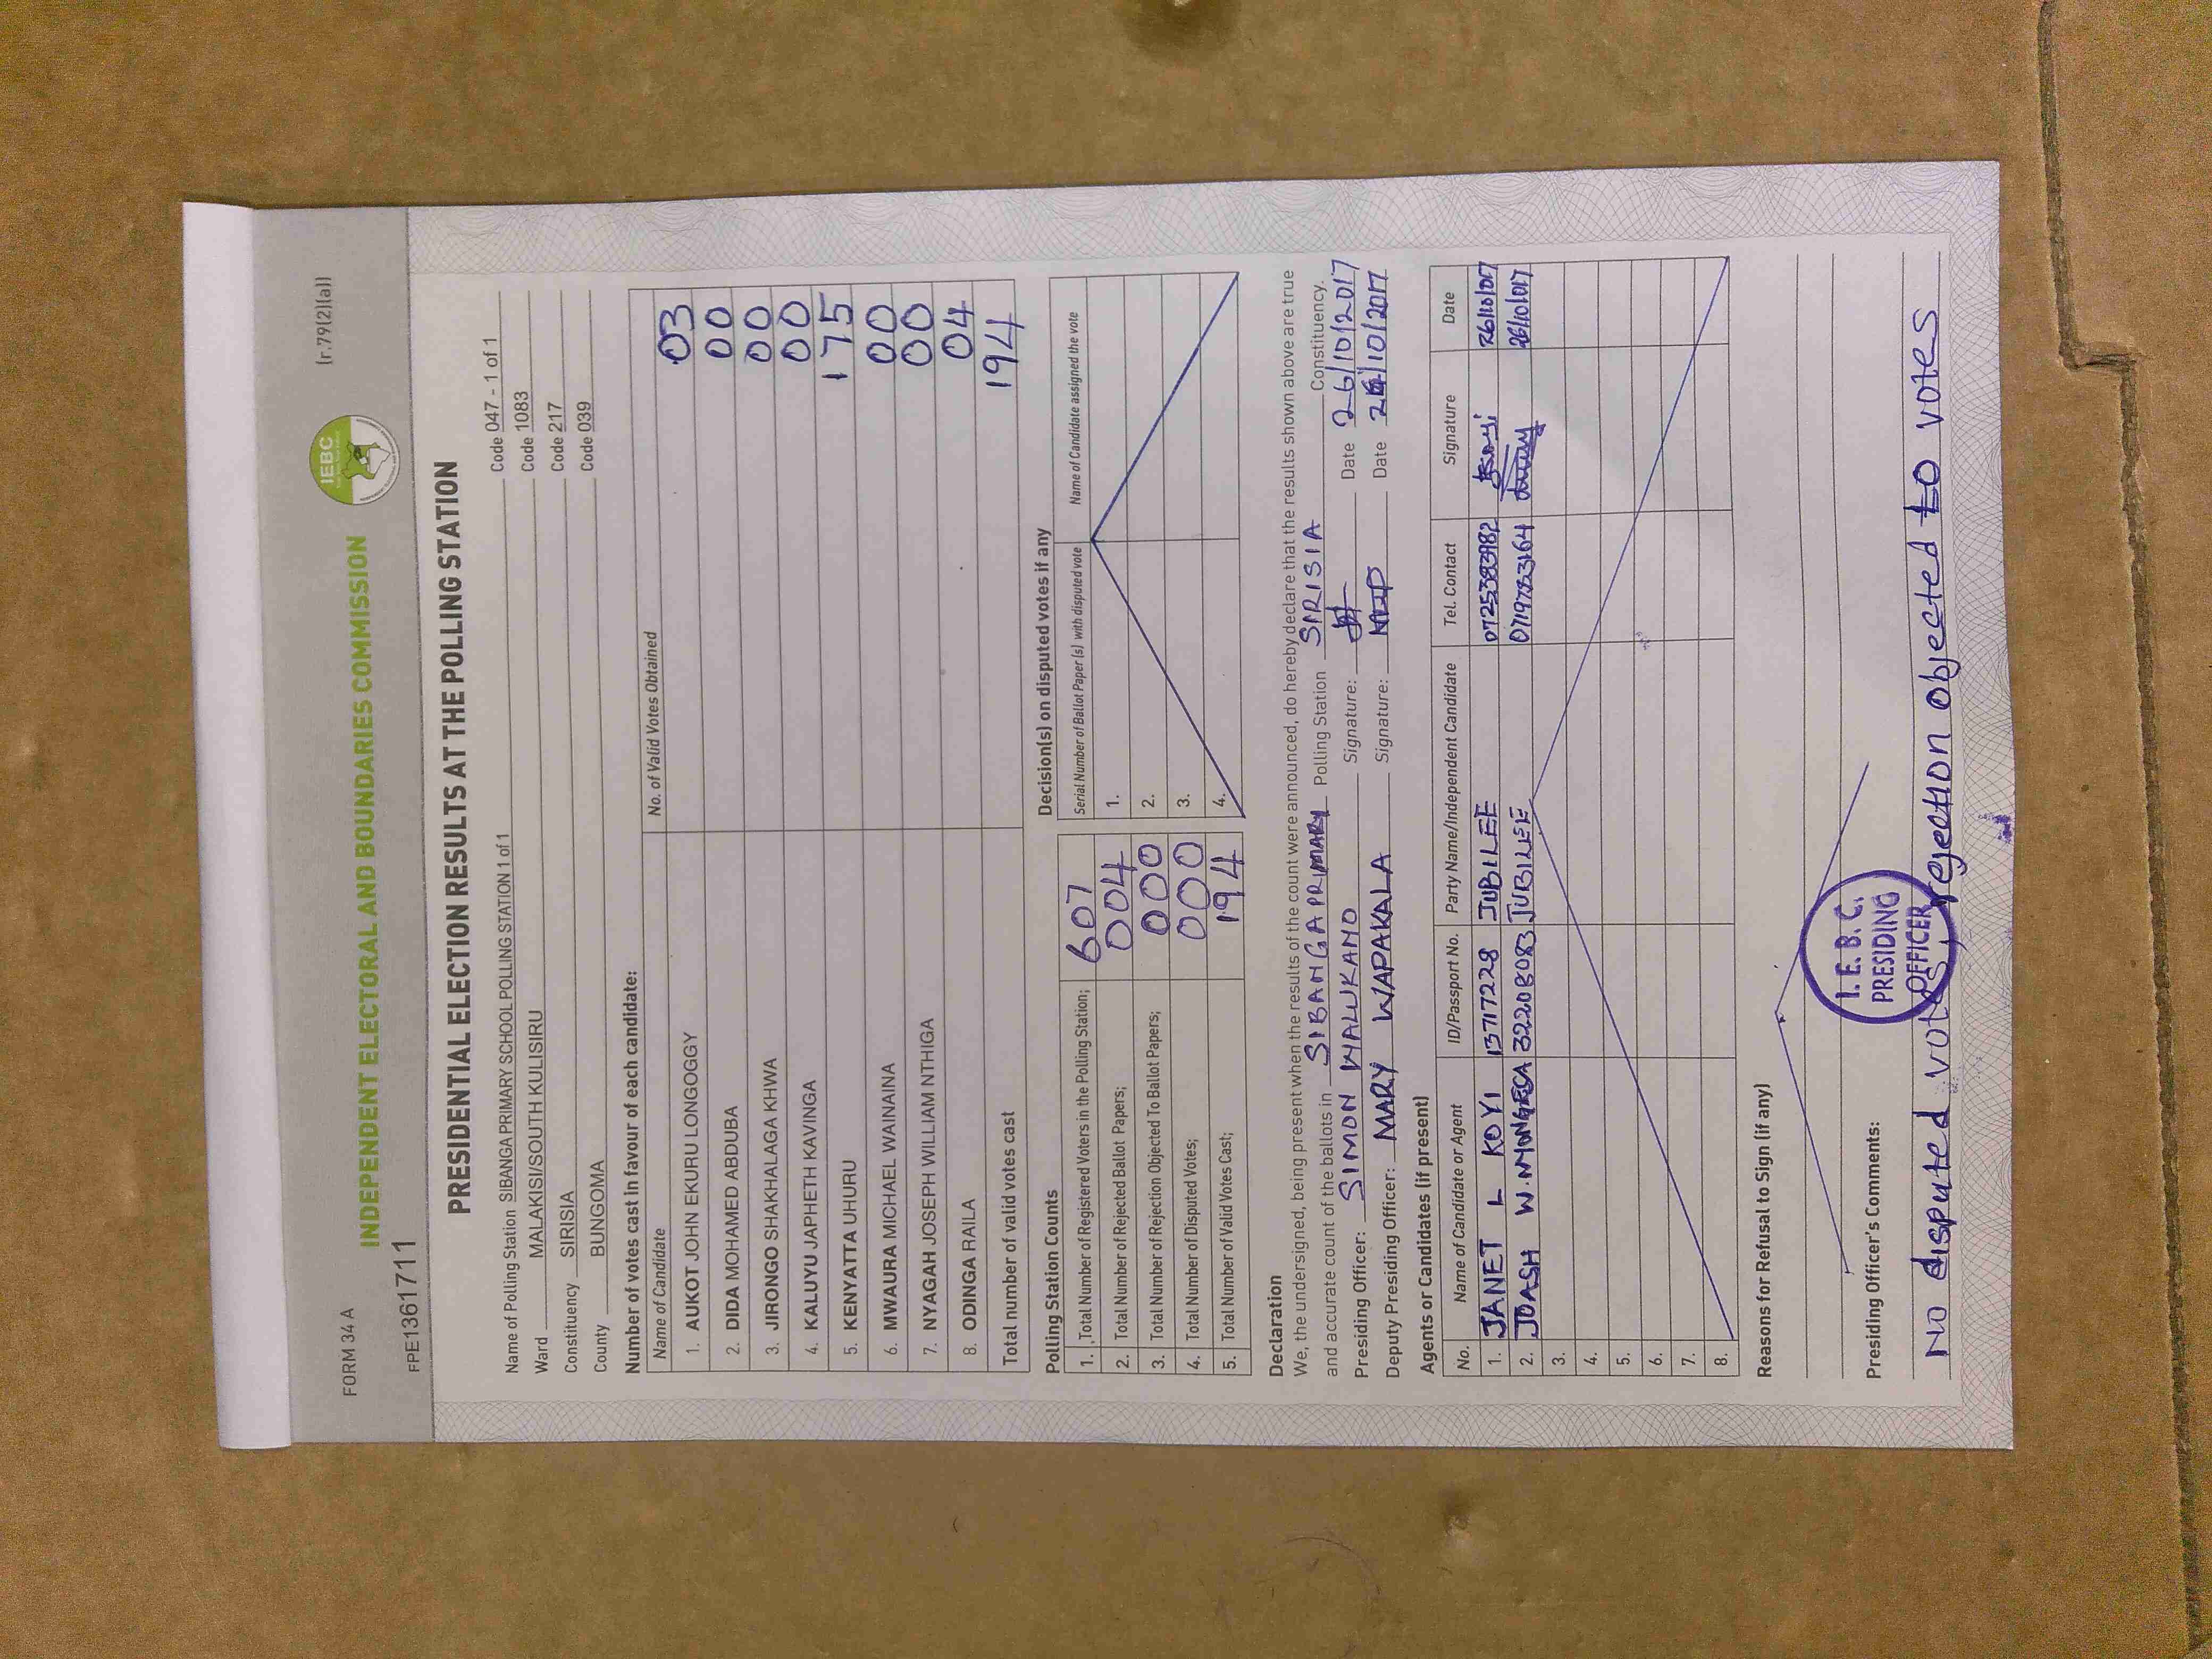 FORM 34 A
(r.79(2)(a))
IEBC
INDEPENDENT ELECTORAL AND BOUNDARIES COMMISSION
FPE1361711
PRESIDENTIAL ELECTION RESULTS AT THE POLLING STATION
Name of Polling Station SIBANGA PRIMARY SCHOOL POLLING STATION 1 of 1 Code 047 - 1 of 1
Ward MALAKISI/SOUTH KULISIRU Code 1083
Constituency SIRISIA Code 217
County BUNGOMA Code 039
Number of votes cast in favour of each candidate:
Name of Candidate No. of Valid Votes Obtained
1. AUKOT JOHN EKURU LONGOGGY 03
2. DIDA MOHAMED ABDUBA 00
3. JIRONGO SHAKHALAGA KHWA 00
4. KALUYU JAPHETH KAVINGA 00
5. KENYATTA UHURU 175
6. MWAURA MICHAEL WAINAINA 00
7. NYAGAH JOSEPH WILLIAM NTHIGA 00
8. ODINGA RAILA 04
Total number of valid votes cast 194
Polling Station Counts
1. Total Number of Registered Voters in the Polling Station; 607
2. Total Number of Rejected Ballot Papers; 004
3. Total Number of Rejection Objected To Ballot Papers; 000
4. Total Number of Disputed Votes; 000
5. Total Number of Valid Votes Cast; 194
Decision(s) on disputed votes if any
Serial Number of Ballot Paper (s) with disputed vote Name of Candidate assigned the vote
1.
2.
3.
4.
Declaration
We, the undersigned, being present when the results of the count were announced, do hereby declare that the results shown above are true
and accurate count of the ballots in SIBANGA PRIMARY Polling Station SIRISIA Constituency.
Presiding Officer: SIMON WALUKANO Signature: Date 26/10/2017
Deputy Presiding Officer: MARY WAPAKALA Signature: Date 26/10/2017
Agents or Candidates (if present)
No. Name of Candidate or Agent ID/Passport No. Party Name/Independent Candidate Tel. Contact Signature Date
1. JANET L KOYI 13717228 JUBILEE 0725383982 26/10/017
2. JOASH W. JUBILEE 26/10/017
3.
4.
5.
6.
7.
8.
Reasons for Refusal to Sign (if any)
Presiding Officer's Comments:
I. E. B. C.
PRESIDING
OFFICER
No disputed votes, rejection objected to votes